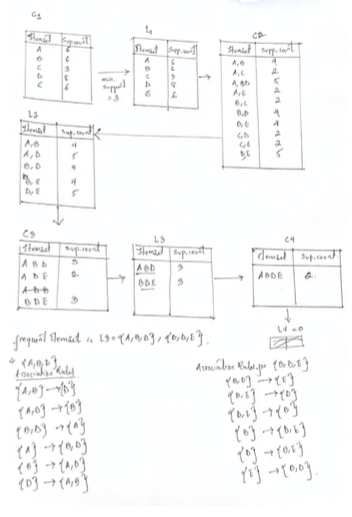 C1
Itemset Supp. count
A 6
B 6
C 3
D 8
E 6
min. support = 3
L1
Itemset Supp. count
A 6
B 6
C 3
D 8
E 6
C2
Itemset Supp. count
A,B 4
A,C 2
A,D 5
A,E 2
B,C 2
B,D 4
B,E 4
C,D 2
C,E 2
D,E 5
L2
Itemset Sup. count
A,B 4
A,D 5
B,D 4
B,E 4
D,E 5
C3
Itemset Sup.count
A B D 3
A D E 2
B D E 3
L3
Itemset Sup.count
ABD 3
BDE 3
C4
Itemset Sup.count
ABDE 2
L4 = 0
frequent Itemset is L3 = {A,B,D}, {B,D,E}.
→ {A,B,D}
Association Rules
{A,B} → {D}
{A,D} → {B}
{B,D} → {A}
{A} → {B,D}
{B} → {A,D}
{D} → {A,B}
Association Rules for {B,D,E}
{B,D} → {E}
{B,E} → {D}
{D,E} → {B}
{B} → {D,E}
{D} → {B,E}
{E} → {B,D}.